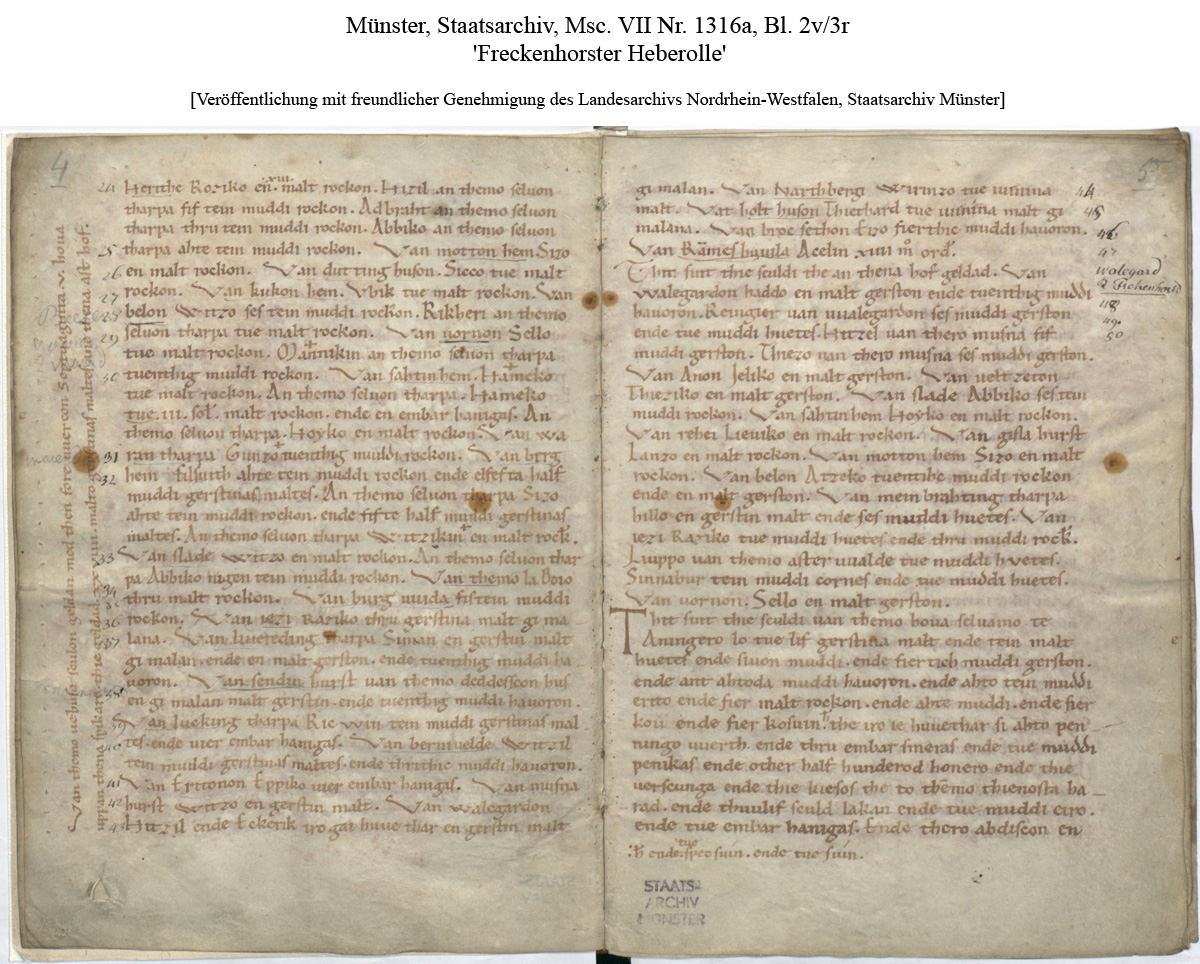 Münster, Staatsarchiv, Msc. VII Nr. 1316a, Bl. 2v/3r
'Freckenhorster Heberolle'
[Veröffentlichung mit freundlicher Genehmigung des Landesarchivs Nordrhein-Westfalen, Staatsarchiv Münster]
4
24 Herithe Raziko en .xiii. malt rockon. Hizil an themo seluon
tharpa fif tein muddi rockon. Adbraht an themo seluon
tharpa thru tein muddi rockon. Abbiko an themo seluon
25 tharpa ahte tein muddi rockon. Van motton hem Sizo
26 en malt rockon. Van dutting huson. Sicco tue malt
27 rockon. Van kukon hem. Vbik tue malt rockon. Van
28 belon Witzo ses tein muddi rockon. Rikheri an themo
29 seluon tharpa tue malt rockon. Van uornon Sello
tue malt rockon. Mannikin an themo seluon tharpa
30 tuenthig muddi rockon. Van sahtinhem. Hameko
tue malt rockon. An themo seluon tharpa. Hameko
tue. malt rockon. ende en embar hanigas. An
themo seluon tharpa. Hoyko en malt rockon. Van wa
31 ran tharpa Gunzo tuenthig muddi rockon. Van berg
32 hem ahte tein muddi rockon ende elfefta half
muddi gerstinas maltes. An themo seluon tharpa Sizo
ahte tein muddi rockon. ende fifte half muddi gerstinas
maltes. An themo seluon tharpa Witzikin en malt rock.
33 Van slade Witzo en malt rockon. An themo seluon thar
pa Abbiko nigen tein muddi rockon. Van themo la Boio
34 thru malt rockon. Van burg uuida fiftein muddi
36 rockon. Van iezi Raziko thru gerstina malt gi ma
37 lana. Van liuereding tharpa Siman en gerstin malt
gi malan. ende en malt gerston. ende tuenthig muddi ha
uoron. Van sendin hurst van themo deddesscon hus
en gi malan malt gerstin. ende tuenthig muddi hauoron.
Van lucking tharpa Ric win tein muddi gerstinas mal
tes. ende uier embar hanigas. Van beruuelde Witzil
tein muddi gerstinas maltes. ende thrithic muddi hauoron.
41 Van Eritonon Eppiko uier embar hanigas. Van musna
42 hurst Witzo en gerstin malt. Van walegardon
Hitzil ende Eckerik iro gai huue thar en gerstin malt
5
gi malan. Van Narthbergi Wirinzo tue uuinina 44
malt. Vat holt huson Thiethard tue uuinina malt gi 45
malana. Van broc sethon Eizo fierthic muddi hauoron. 46
Van Rameshuuila Acelin 47
Thit sint thie sculdi the an thena hof geldad. Van walegard
Walegardon haddo en malt gerston ende tuenthig muddi
hauoron. Reingier van uualegardon ses muddi gerston
ende tue muddi huetes. Hitzel van thero musna fif 49
muddi gerston. Thiezo van thero musna ses muddi gerston. 50
Van Anon Jeliko en malt gerston. Van uelt zeton
Thieziko en malt gerston. Van slade Abbiko sestein
muddi rockon. Van sahtinhem Hoyko en malt rockon.
Van rehei Lieuiko en malt rockon. Van gisla hurst
Lanzo en malt rockon. Van motton hem Sizo en malt
rockon. Van belon Atzeko tuenthic muddi rockon
ende en malt gerston. Van meinbrahting tharpa
hillo en gerstin malt ende ses muddi huetes. Van
iezi Raziko tue muddi huetes ende thru muddi rock.
Liuppo van themo aster uualde tue muddi huetes.
Sinnabur tein muddi cornes ende tue muddi huetes.
Van uornon. Sello en malt gerston.
Thit sint thie sculdi van themo houa seluamo te
Aningero lo tue lif gerstina malt ende tein malt
huetes ende siuon muddi. ende fiertich muddi gerston.
ende ant ahtoda muddi hauoron. ende ahto tein muddi
erito ende fier malt rockon. ende ahte muddi. ende fier
koii ende fier kosuin. the iro ie huuethar si ahto pen
ningo uuerth. ende thru embar smeras ende tue muddi
penikas ende other half hunderod honero ende thie
uerscunga ende thie kiesos the to themo thienosta ha
rad. ende thuulif sculd lakan ende tue muddi eiro.
ende tue embar hanigas. Ende thero abdiscon en
ende tue specsuin. ende tue suin.
Van themo uehusa sculon geldan med then fore uueron
STAATS-
ARCHIV
MÜNSTER